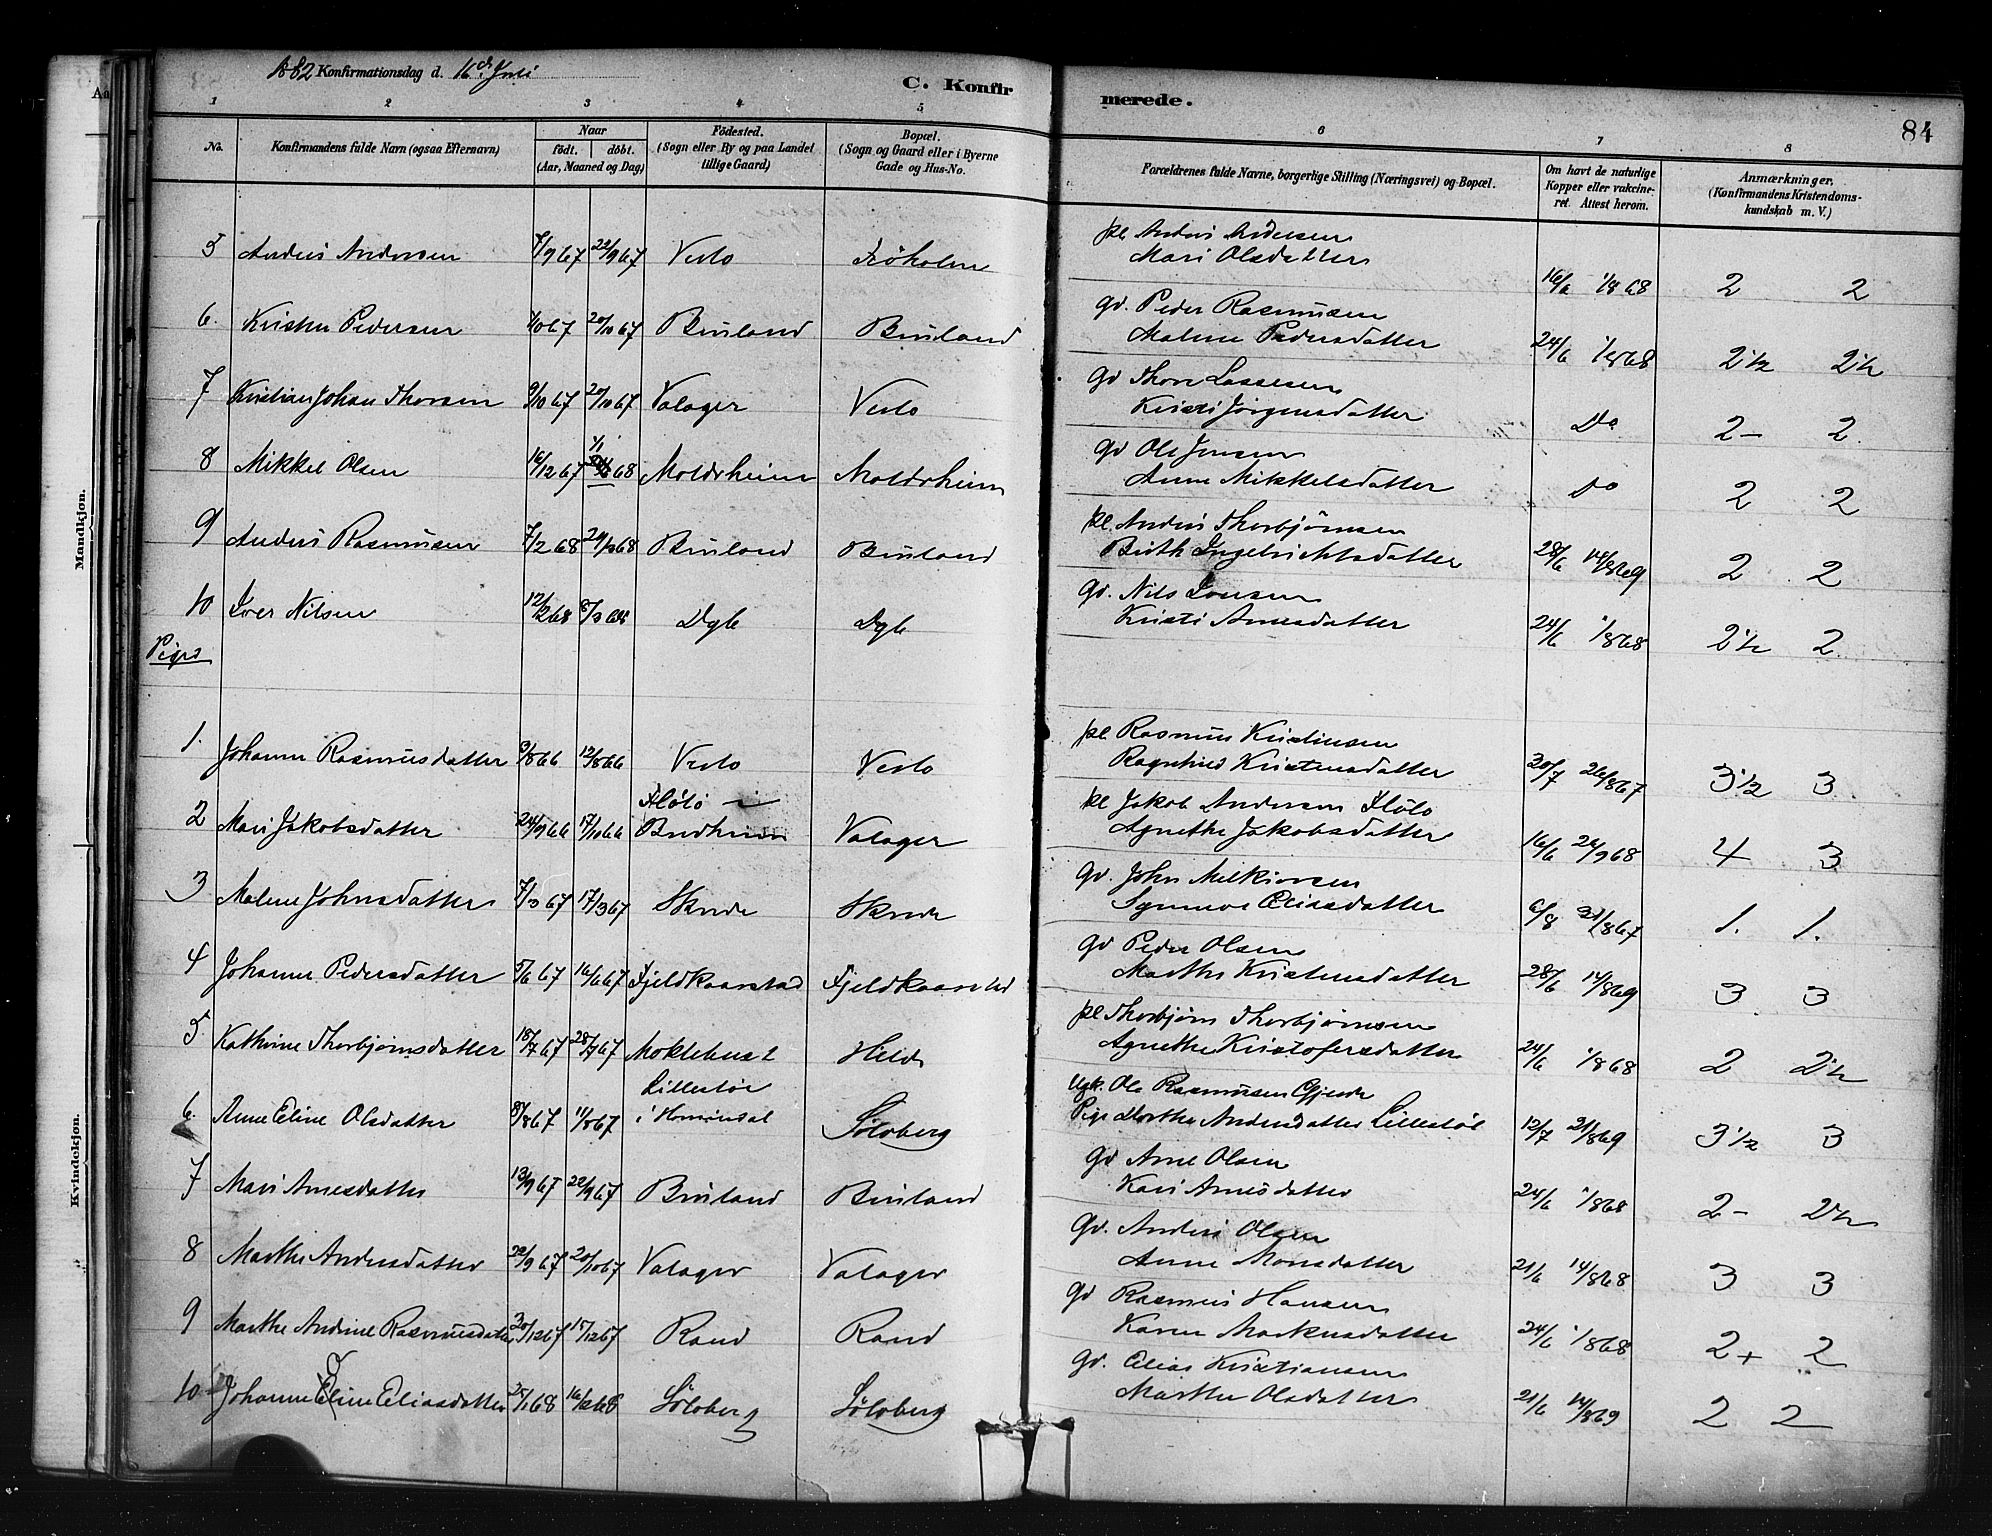 1882 Konfirmationsdag d. 16de Juli
C. Konfirmerede.
84
1 2 3 4 5 6 7 8
No.
Konfirmandens fulde Navn (ogsaa Efternavn)
Naar
födt. döbt.
(Aar, Maaned og Dag)
Födested.
(Sogn eller By og paa Landet
tillige Gaard)
Bopæl.
(Sogn og Gaard eller i Byerne
Gade og Hus-No.
Forældrenes fulde Navne, borgerlige Stilling (Næringsvei) og Bopæl.
Om havt de naturlige
Kopper eller vakcine-
ret. Attest herom.
Anmærkninger,
(Konfirmandens Kristendoms-
kundskab m. V.)
Mandkjøn.
5 Anders Andersen 7/9 67 22/9 67 Veslo
pl. Anders Andersen
Mari Olsdatter
1/8 68 2 2
6. Kristen Pedersen 20/10 67 Bruland Bruland
gd. Peder Rasmusen
Malene Pedersdatter
24/6 1/8 68 2 1/2 2 1/2
7 Kristian Johan Thorsen 9/10 67 20/10 67 Valager Veslo
gd Thore Lassesen
Kristi Jörgensdatter
Do 2- 2.
8 Mikkel Olsen 16/12 67 1/1 68 Moldrheim Moldrheim
gd Ole Jensen
Anne Mikkelsdatter
Do 2 2
9 Anders Rasmusen 7/2 68 Bruland Bruland
pl. Anders Thorbjörnsen
Birth Ingebrichtsdatter
28/6 14/8 69 2 2
10 Iver Nilsen 12/2 68 8/3 68 Dgb Dgb
gd. Nils
Kristi Arnesdatter
24/6 1/8 68 2 1/2 2
Piger
Kvindekjøn.
1. Johanne Rasmusdatter 3/8 66 12/8 66 Veslo Veslo
pl. Rasmus Kristensen
Kristensdatter
30/7 26/8 67 3 1/2 3
2 Mari Jakobsdatter 24/9 66 17/10 66 Flölö i
Valager
pl Jakob Andersen Flölo
Agnethe Jakobsdatter
16/6 68 4 3
3 Malene Johnsdatter 7/3 67 17/3 67 Skrede Skrede
gd. John Melkiorsen
Synneve Eliasdatter
6/8 31/8 67 1. 1.
4 Johanne Pedersdatter 5/6 67 16/6 67 Fjeldkaarstad Fjeldkaarstad
gd Peder Olsen
Marthe Kristensdatter
28/6 14/8 69 3 3
5 Kathrine Thorbjörnsdatter 18/7 67 28/7 67 Myklebust
pl Thorbjörn Thorbjörnsen
Agnethe Kristofersdatter
24/6 1/8 68 2 2 1/2
6. Anne Eline Olsdatter 8/8 67 11/8 67 Lillestöl
i Hornindal Sölvberg
Ugk. Ole Rasmusen Gjerde
Pige Marthe Andersdatter Lillestöl
12/7 21/8 69 3 1/2 3
7 Mari Arnesdatter 13/9 67 22/9 67 Bruland Bruland
gd Arne Olsen
Kari Arnesdatter
24/6 1/8 68 2- 2 1/2
8 Marthe Andersdatter 22/9 67 20/10 67 Valager Valager
gd. Anders Olsen
Anne Monsdatter
21/6 14/8 68 3 3
9 Marthe Andrine Rasmusdatter 15/12 67 Rand Rand
gd Rasmus Hansen
Karen Markusdatter
24/6 1/8 68 2+ 2
10 Johanne Eline Eliasdatter 25/1 68 16/2 68 Sölvberg Sölvberg
gd. Elias Kristiansen
Marthe Olsdatter
21/6 14/8 69 2 2